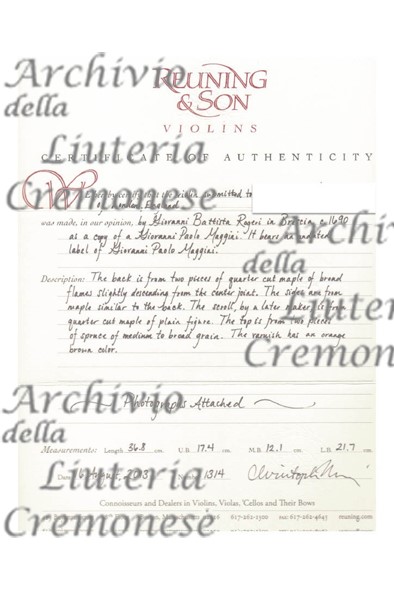 Archivio
della
Liuteria
Cremonese
REUNING
& SON
VIOLINS
CERTIFICATE OF AUTHENTICITY
We hereby certify that the violin submitted to
of London, England
was made, in our opinion, by Giovanni Battista Rogeri in Brescia, c. 1690
as a copy of a Giovanni Paolo Maggini. It bears an undated
label of Giovanni Paolo Maggini.
Archivio
della
Liuteria
Cremonese
Description: The back is from two pieces of quarter cut maple of broad
flames slightly descending from the center joint. The sides are from
maple similar to the back. The scroll, by a later maker, is from
quarter cut maple of plain figure. The top is from two pieces
of spruce of medium to broad grain. The varnish has an orange
brown color.
Archivio
della
Liuteria
Cremonese
Photographs Attached
Measurements: Length 36.8 cm. U.B. 17.4 cm. M.B. 12.1 cm. L.B. 21.7 cm.
Date 6 August, 2013 Number 1314
Connoisseurs and Dealers in Violins, Violas, 'Cellos and Their Bows
617-262-1300 fax: 617-262-4645 reuning.com